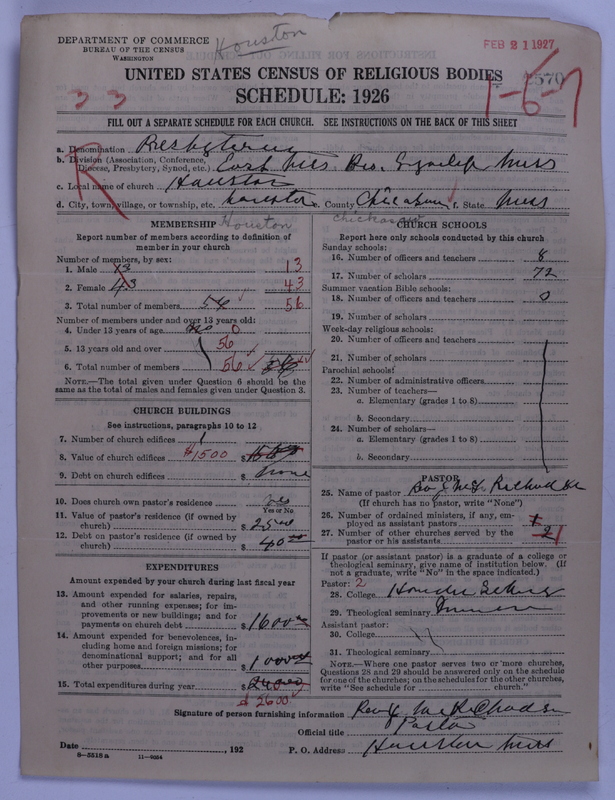 DEPARTMENT OF COMMERCE
BUREAU OF THE CENSUS
WASHINGTON
Houston
FEB 21 1927
UNITED STATES CENSUS OF RELIGIOUS BODIES
2570
SCHEDULE: 1926
3 3
1-6-7
FILL OUT A SEPARATE SCHEDULE FOR EACH CHURCH. SEE INSTRUCTIONS ON THE BACK OF THIS SHEET
R
a. Denomination Presbyterian
b. Division (Association, Conference, Diocese, Presbytery, Synod, etc.) East Miss Miss
c. Local name of church Houston
d. City, town, village, or township, etc. Houston e. County Chickasaw f. State Miss
Houston Chickasaw
MEMBERSHIP
Report number of members according to definition of
member in your church
Number of members, by sex:
1. Male 13 13
2. Female 43 43
3. Total number of members 56 56
Number of members under and over 13 years old:
4. Under 13 years of age no 0
5. 13 years old and over 56
6. Total number of members 56
NOTE.—The total given under Question 6 should be the
same as the total of males and females given under Question 3.
CHURCH BUILDINGS
See instructions, paragraphs 10 to 12
7. Number of church edifices 1
8. Value of church edifices $1500 $
9. Debt on church edifices $ none
10. Does church own pastor's residence yes
Yes or No
11. Value of pastor's residence (if owned by
church) $ 2500
12. Debt on pastor's residence (if owned by
church) $
EXPENDITURES
Amount expended by your church during last fiscal year
13. Amount expended for salaries, repairs,
and other running expenses; for im-
provements or new buildings; and for
payments on church debt $ 1600
14. Amount expended for benevolences, in-
cluding home and foreign missions; for
denominational support; and for all
other purposes $ 1000
15. Total expenditures during year $
$ 2600
CHURCH SCHOOLS
Report here only schools conducted by this church
Sunday schools:
16. Number of officers and teachers 8
17. Number of scholars 72
Summer vacation Bible schools:
18. Number of officers and teachers 0
19. Number of scholars
Week-day religious schools:
20. Number of officers and teachers
21. Number of scholars
Parochial schools:
22. Number of administrative officers
23. Number of teachers—
a. Elementary (grades 1 to 8)
b. Secondary
24. Number of scholars—
a. Elementary (grades 1 to 8)
b. Secondary
PASTOR
25. Name of pastor
(If church has no pastor, write "None")
26. Number of ordained ministers, if any, em-
ployed as assistant pastors
27. Number of other churches served by the
pastor or his assistants 2 1
If pastor (or assistant pastor) is a graduate of a college or
theological seminary, give name of institution below. (If
not a graduate, write "No" in the space indicated.)
Pastor: 2
28. College
29. Theological seminary
Assistant pastor:
30. College
31. Theological seminary
NOTE.—Where one pastor serves two or more churches,
Questions 28 and 29 should be answered only on the schedule
for one of the churches; on the schedules for the other churches,
write "See schedule for church."
Signature of person furnishing information
Official title Pastor
Date , 192 P. O. Address Houston Miss
8-5518 a 11-9054